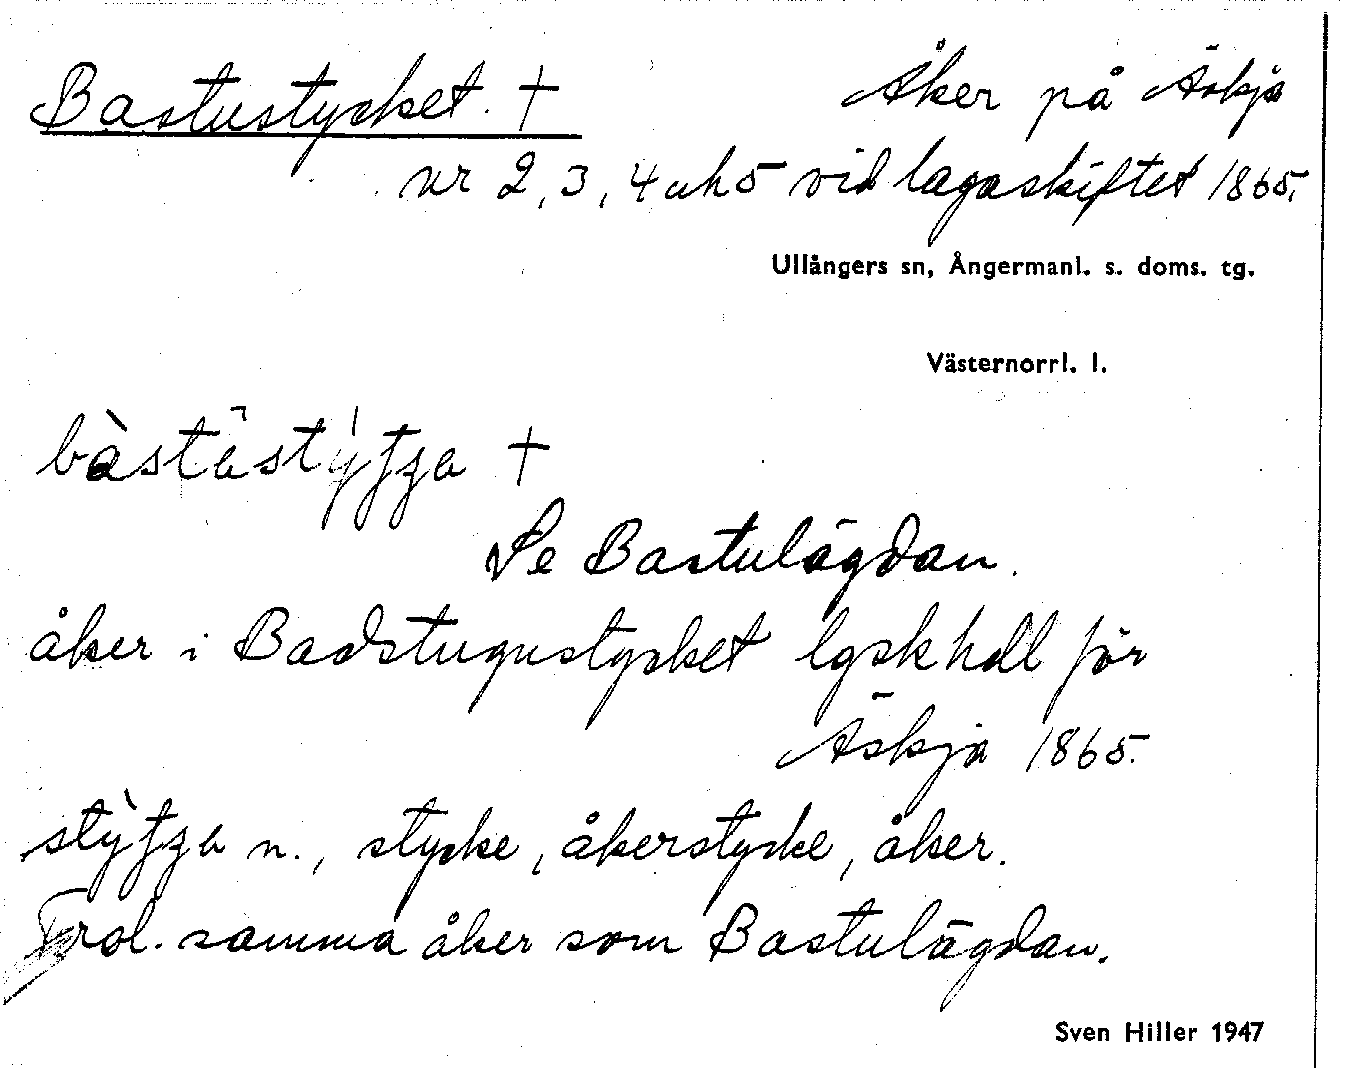 Bastustycket. † Åker på Äskja
nr 2, 3, 4 och 5 vid lagaskiftet 1865.
Ullångers sn, Ångermanl. s. doms. tg.
Västernorrl. l.
†
Se Bastulägdan.
åker i Badstugustycket lgsk hdl för
Äskja 1865.
n., stycke, åkerstycke, åker.
Trol. samma åker som Bastulägdan.
Sven Hiller 1947